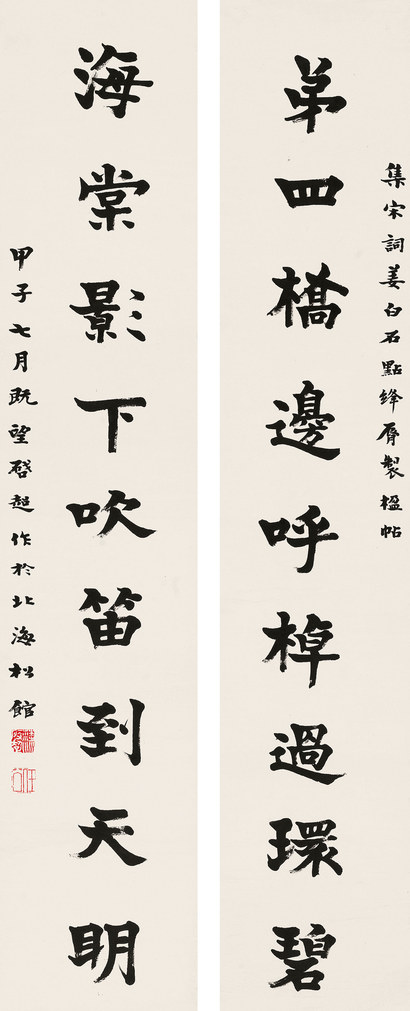 集宋詞姜白石點絳脣製楹帖
弟四橋邊呼棹過環碧
海棠影下吹笛到天明
甲子七月既望啓超作於北海松館